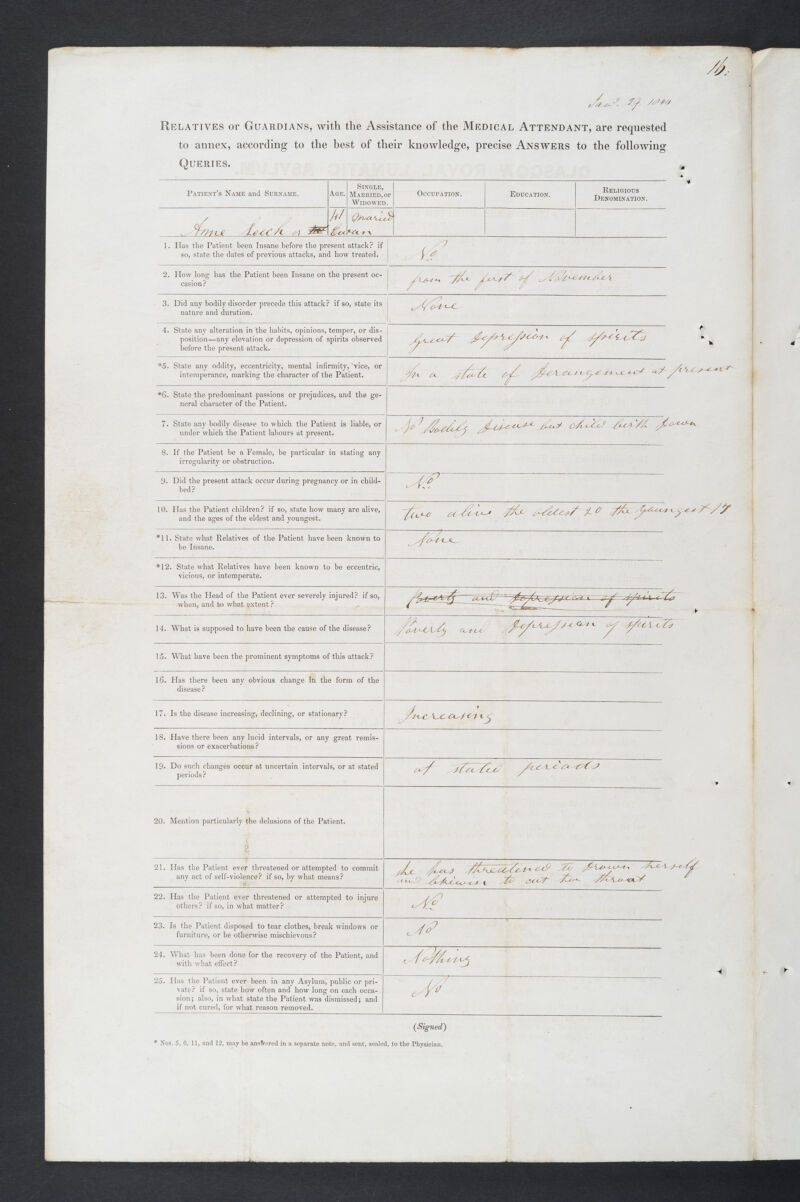 16.
Jany. 29 1844
RELATIVES or GUARDIANS, with the Assistance of the MEDICAL ATTENDANT, are requested
to annex, according to the best of their knowledge, precise ANSWERS to the following
QUERIES.
PATIENT'S NAME and SURNAME. AGE. SINGLE, MARRIED, or WIDOWED. OCCUPATION. EDUCATION. RELIGIOUS DENOMINATION.
41 Maried
Anne Leech or Ewan
1. Has the Patient been Insane before the present attack? if
so, state the dates of previous attacks, and how treated.
No
2. How long has the Patient been Insane on the present oc-
casion?
from the first of November
3. Did any bodily disorder precede this attack? if so, state its
nature and duration.
None
4. State any alteration in the habits, opinions, temper, or dis-
position—any elevation or depression of spirits observed
before the present attack.
Great depression of spirits
*5. State any oddity, eccentricity, mental infirmity, vice, or
intemperance, marking the character of the Patient.
In a state of derangement at present
*6. State the predominant passions or prejudices, and the ge-
neral character of the Patient.
7. State any bodily disease to which the Patient is liable, or
under which the Patient labours at present.
No Bodily disease but child birth down
8. If the Patient be a Female, be particular in stating any
irregularity or obstruction.
9. Did the present attack occur during pregnancy or in child-
bed?
No
10. Has the Patient children? if so, state how many are alive,
and the ages of the eldest and youngest.
two alive the oldest 20 the youngest 17
*11. State what Relatives of the Patient have been known to
be Insane.
None
*12. State what Relatives have been known to be eccentric,
vicious, or intemperate.
13. Was the Head of the Patient ever severely injured? if so,
when, and to what extent?
Poverty and depression of spirits
14. What is supposed to have been the cause of the disease?
Poverty and depression of spirits
15. What have been the prominent symptoms of this attack?
16. Has there been any obvious change in the form of the
disease?
17. Is the disease increasing, declining, or stationary?
Increasing
18. Have there been any lucid intervals, or any great remis-
sions or exacerbations?
19. Do such changes occur at uncertain intervals, or at stated
periods?
at stated periods
20. Mention particularly the delusions of the Patient.
21. Has the Patient ever threatened or attempted to commit
any act of self-violence? if so, by what means?
she has threatened to drown herself
and likewise to cut her throat
22. Has the Patient ever threatened or attempted to injure
others? if so, in what matter?
No
23. Is the Patient disposed to tear clothes, break windows or
furniture, or be otherwise mischievous?
No
24. What has been done for the recovery of the Patient, and
with what effect?
Nothing
25. Has the Patient ever been in any Asylum, public or pri-
vate? if so, state how often and how long on each occa-
sion; also, in what state the Patient was dismissed; and
if not cured, for what reason removed.
No
(Signed)
* Nos. 5, 6, 11, and 12, may be answered in a separate note, and sent, sealed, to the Physician.